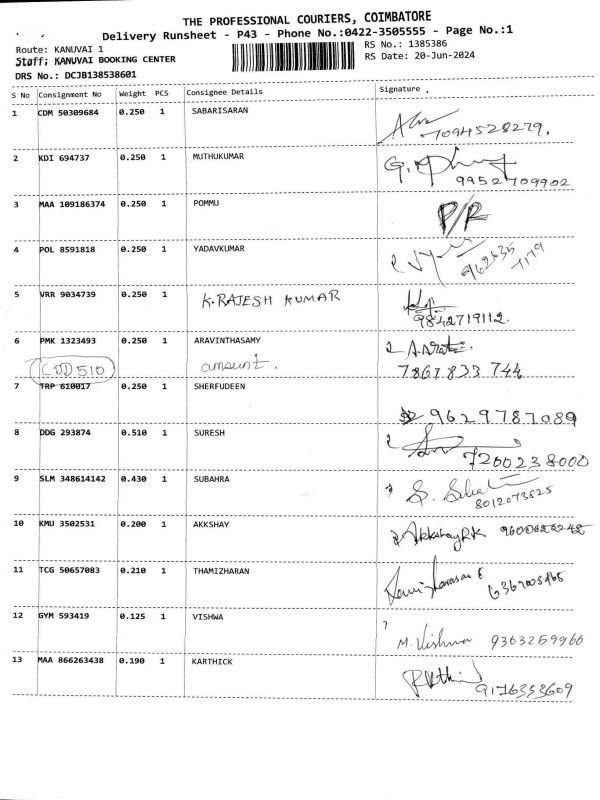 THE PROFESSIONAL COURIERS, COIMBATORE
Delivery Runsheet - P43 - Phone No.:0422-3505555 - Page No.:1
Route: KANUVAI 1 RS No.: 1385386
Staff: KANUVAI BOOKING CENTER RS Date: 20-Jun-2024
DRS No.: DCJB138538601
S No Consignment No Weight PCS Consignee Details Signature
1 CDM 50309684 0.250 1 SABARISARAN
7094528279.
2 KDI 694737 0.250 1 MUTHUKUMAR
9952709902
3 MAA 109186374 0.250 1 POMMU P/R
4 POL 8591818 0.250 1 YADAVKUMAR
5 VRR 9034739 0.250 1 K.RAJESH KUMAR
9842719112.
6 PMK 1323493 0.250 1 ARAVINTHASAMY
CDD 510 amount. 7867833 744
7 TRP 610017 0.250 1 SHERFUDEEN
9629787089
8 DDG 293874 0.510 1 SURESH
7200238000
9 SLM 348614142 0.430 1 SUBAHRA
8012073525
10 KMU 3502531 0.200 1 AKKSHAY AkkshayRK
11 TCG 50657083 0.210 1 THAMIZHARAN
12 GYM 593419 0.125 1 VISHWA
M. Vishwa 9363259966
13 MAA 866263438 0.190 1 KARTHICK
9176353609